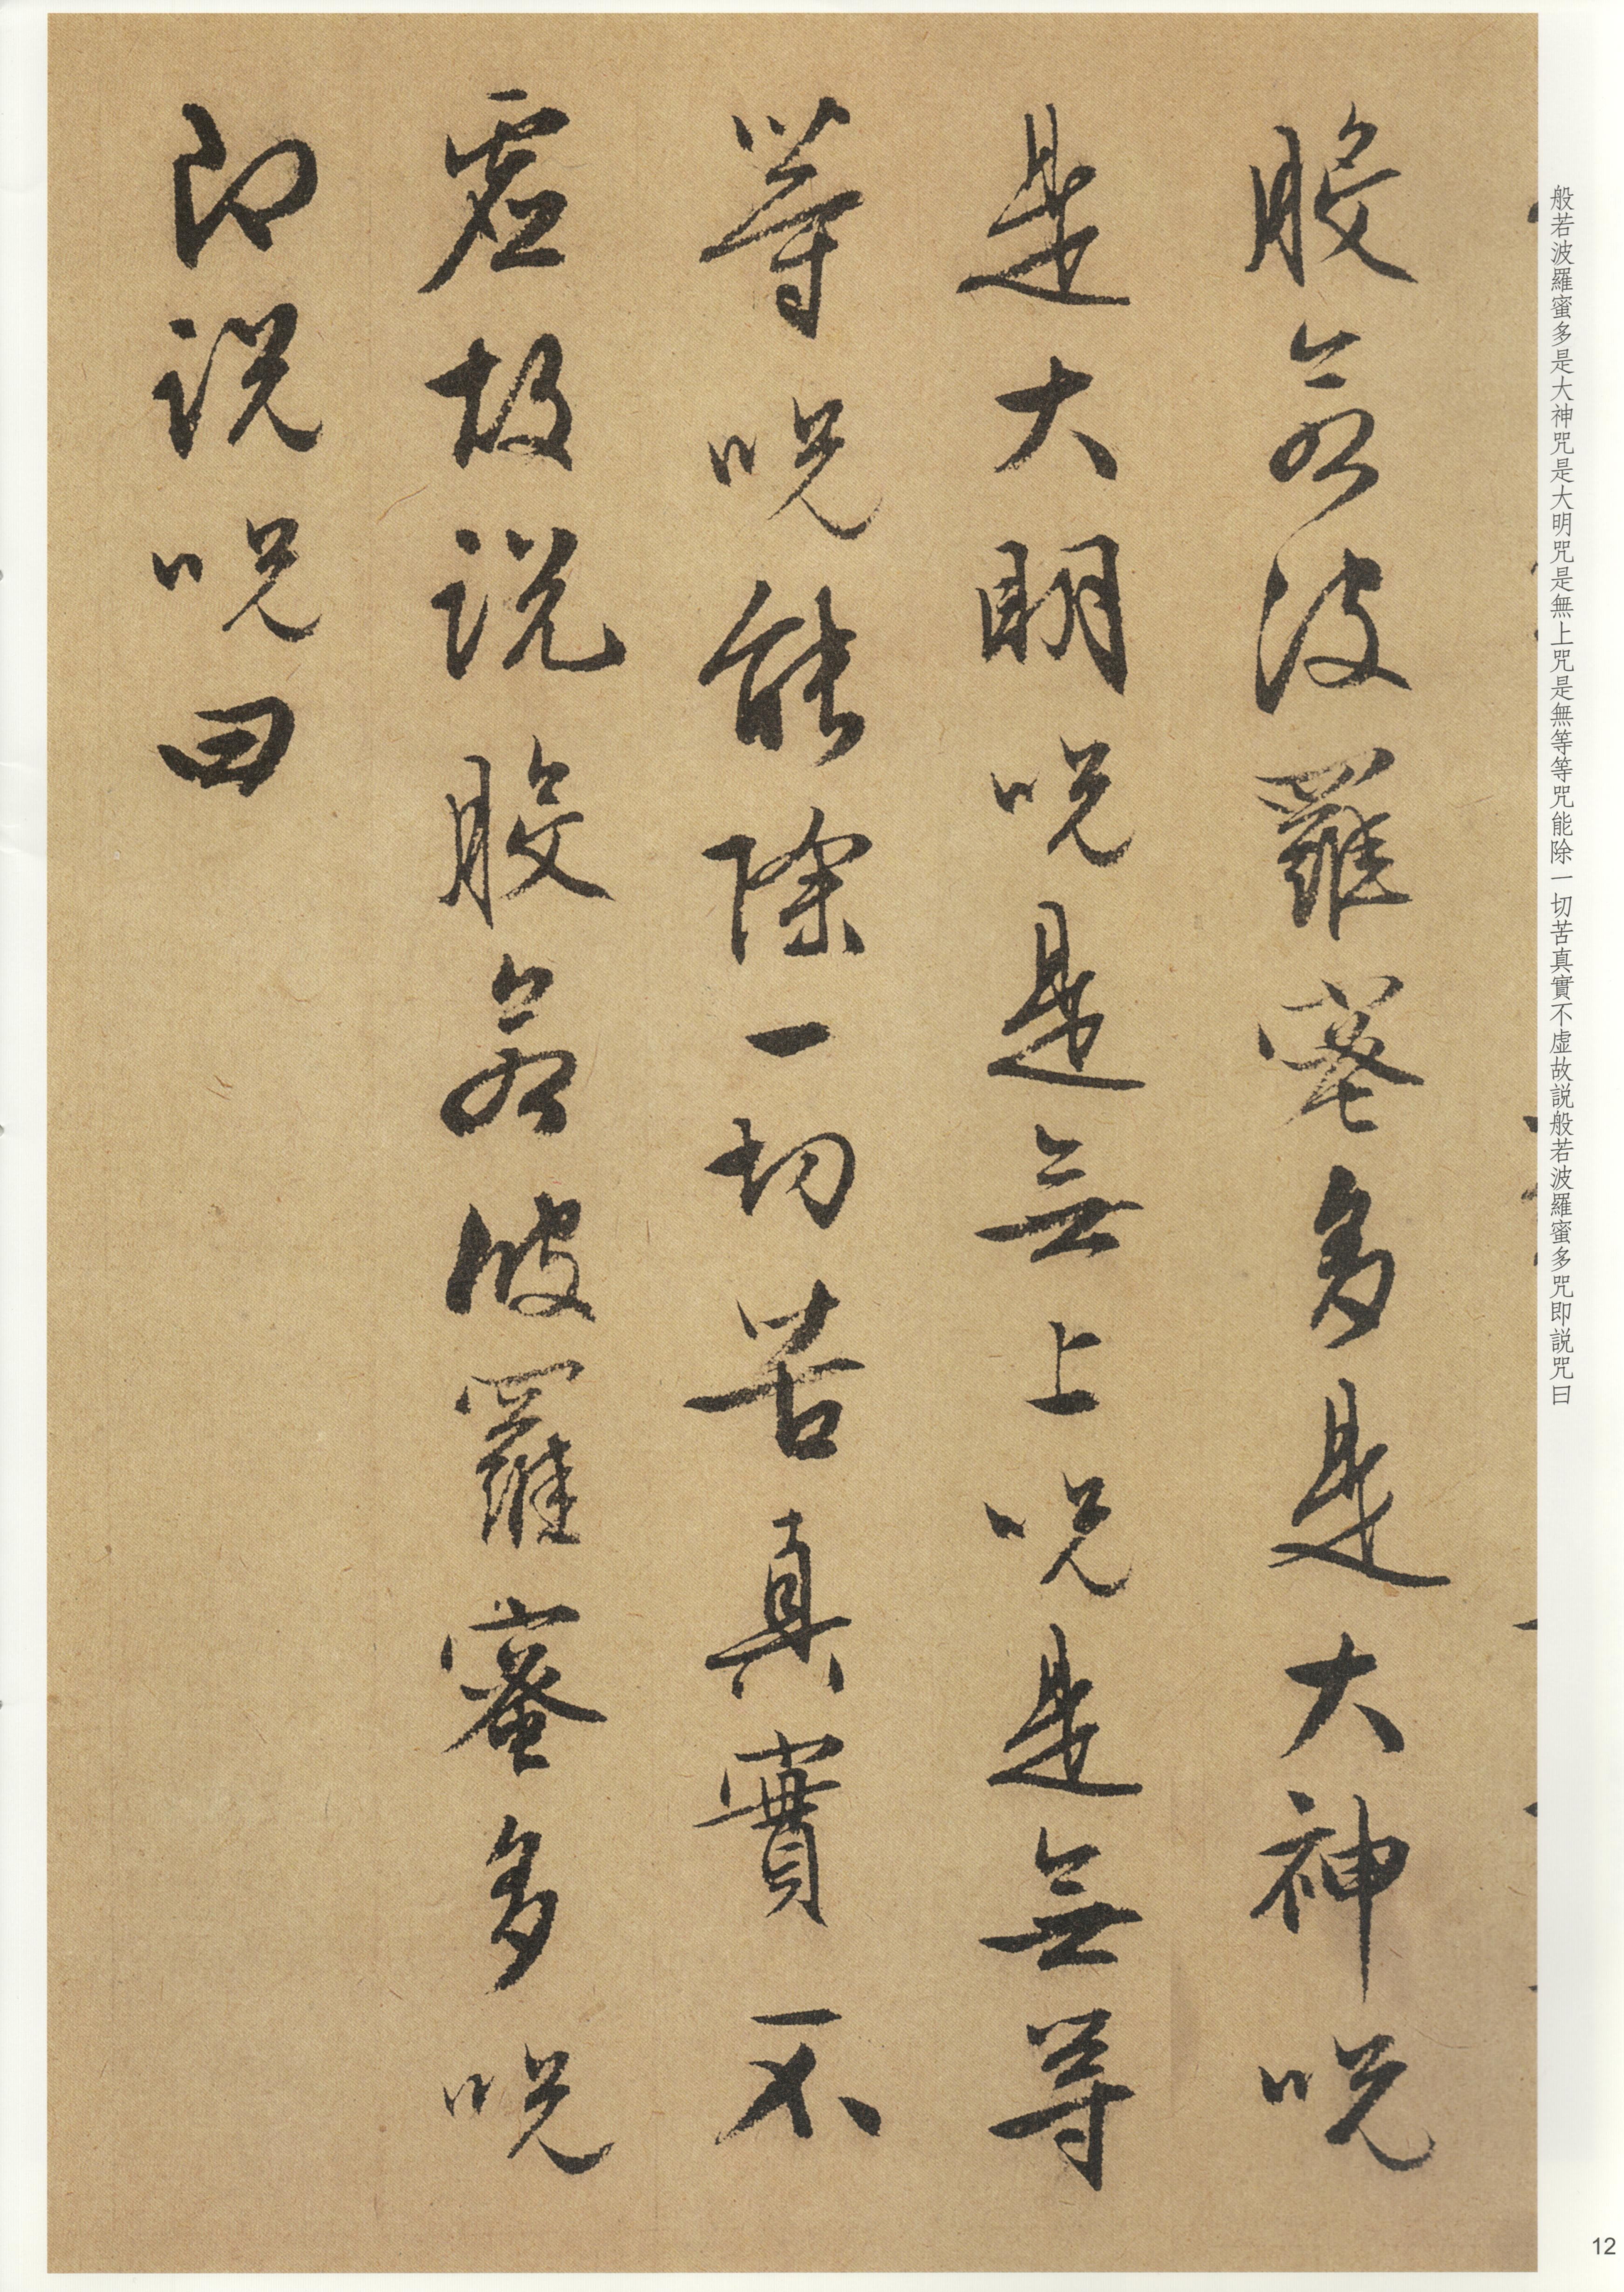 般若波羅蜜多是大神咒是大明咒是無上咒是無等等咒能除一切苦真實不虛故説般若波羅蜜多咒即説咒曰
般若波羅蜜多是大神呪
是大明呪是无上呪是无等
等呪能除一切苦真實不
虛故説般若波羅蜜多呪
即説呪曰
12